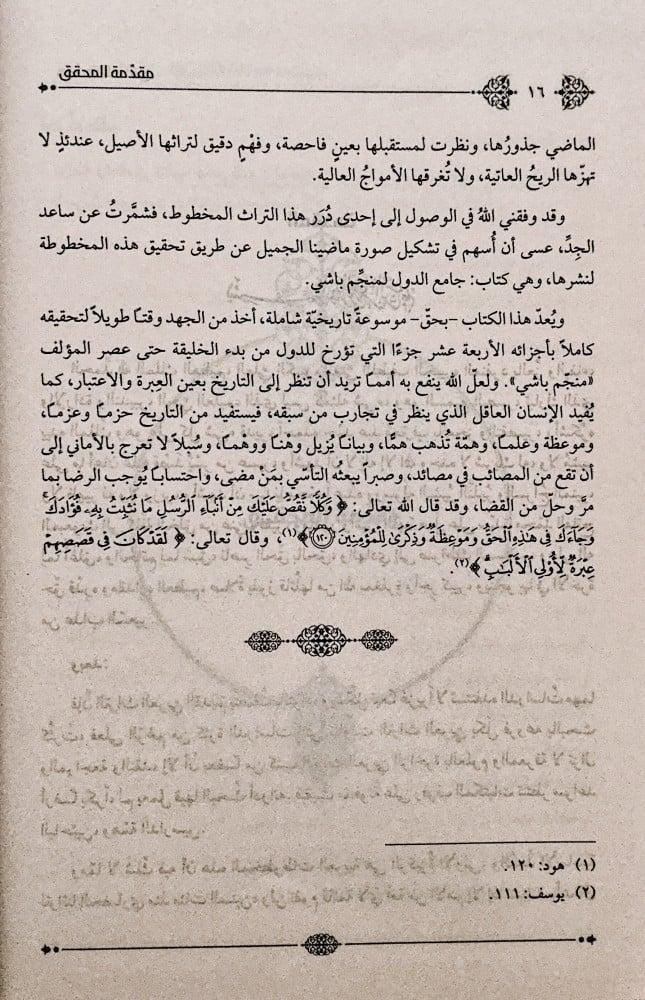 مقدّمة المحقق
١٦
الماضي جذورُها، ونظرت لمستقبلها بعينٍ فاحصة، وفهْمٍ دقيق لتراثها الأصيل، عندئذٍ لا
تهزّها الريحُ العاتية، ولا تُغرقها الأمواجُ العالية.
وقد وفقني اللهُ في الوصول إلى إحدى دُرَر هذا التراث المخطوط، فشمَّرتُ عن ساعد
الجِدِّ، عسى أن أُسهم في تشكيل صورة ماضينا الجميل عن طريق تحقيق هذه المخطوطة
لنشرها، وهي كتاب: جامع الدول لمنجِّم باشي.
ويُعدّ هذا الكتاب -بحقّ- موسوعةً تاريخيّة شاملة، أخذ من الجهد وقتًا طويلاً لتحقيقه
كاملاً بأجزائه الأربعة عشر جزءًا التي تؤرخ للدول من بدء الخليقة حتى عصر المؤلف
«منجّم باشي». ولعلّ الله ينفع به أممًا تريد أن تنظر إلى التاريخ بعين العِبرة والاعتبار، كما
يُفيد الإنسان العاقل الذي ينظر في تجارب من سبقه، فيستفيد من التاريخ حزمًا وعزمًا،
وموعظة وعلمًا، وهمّة تُذهب همًّا، وبيانًا يُزيل وهْنًا ووهْمًا، وسُبلاً لا تعرج بالأماني إلى
أن تقع من المصائب في مصائد، وصبراً يبعثُه التأسّي بمَنْ مضى، واحتسابًا يُوجب الرضا بما
مرَّ وحلّ من القضا، وقد قال الله تعالى: ﴿ وَكُلًّا نَّقُصُّ عَلَيْكَ مِنْ أَنۢبَآءِ ٱلرُّسُلِ مَا نُثَبِّتُ بِهِۦ فُؤَادَكَۚ
وَجَآءَكَ فِي هَٰذِهِ ٱلْحَقُّ وَمَوْعِظَةٌ وَذِكْرَىٰ لِلْمُؤْمِنِينَ ﴿١٢٠﴾ ﴾(١)، وقال تعالى: ﴿ لَقَدْ كَانَ فِي قَصَصِهِمْ
عِبْرَةٌ لِّأُوْلِي ٱلْأَلْبَٰبِ ﴾(٢).
(١) هود: ١٢٠.
(٢) يوسف: ١١١.